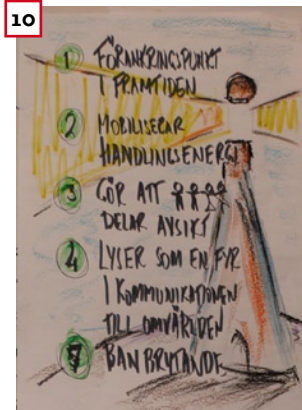 10
1 FÖRANKRINGSPUNKT
I FRAMTIDEN
2 MOBILISERAR
HANDLINGSENERGI
3 GÖR ATT
DELAR AVSIKT
4 LYSER SOM EN FYR
I KOMMUNIKATIONEN
TILL OMVÄRLDEN
5 BANBRYTANDE